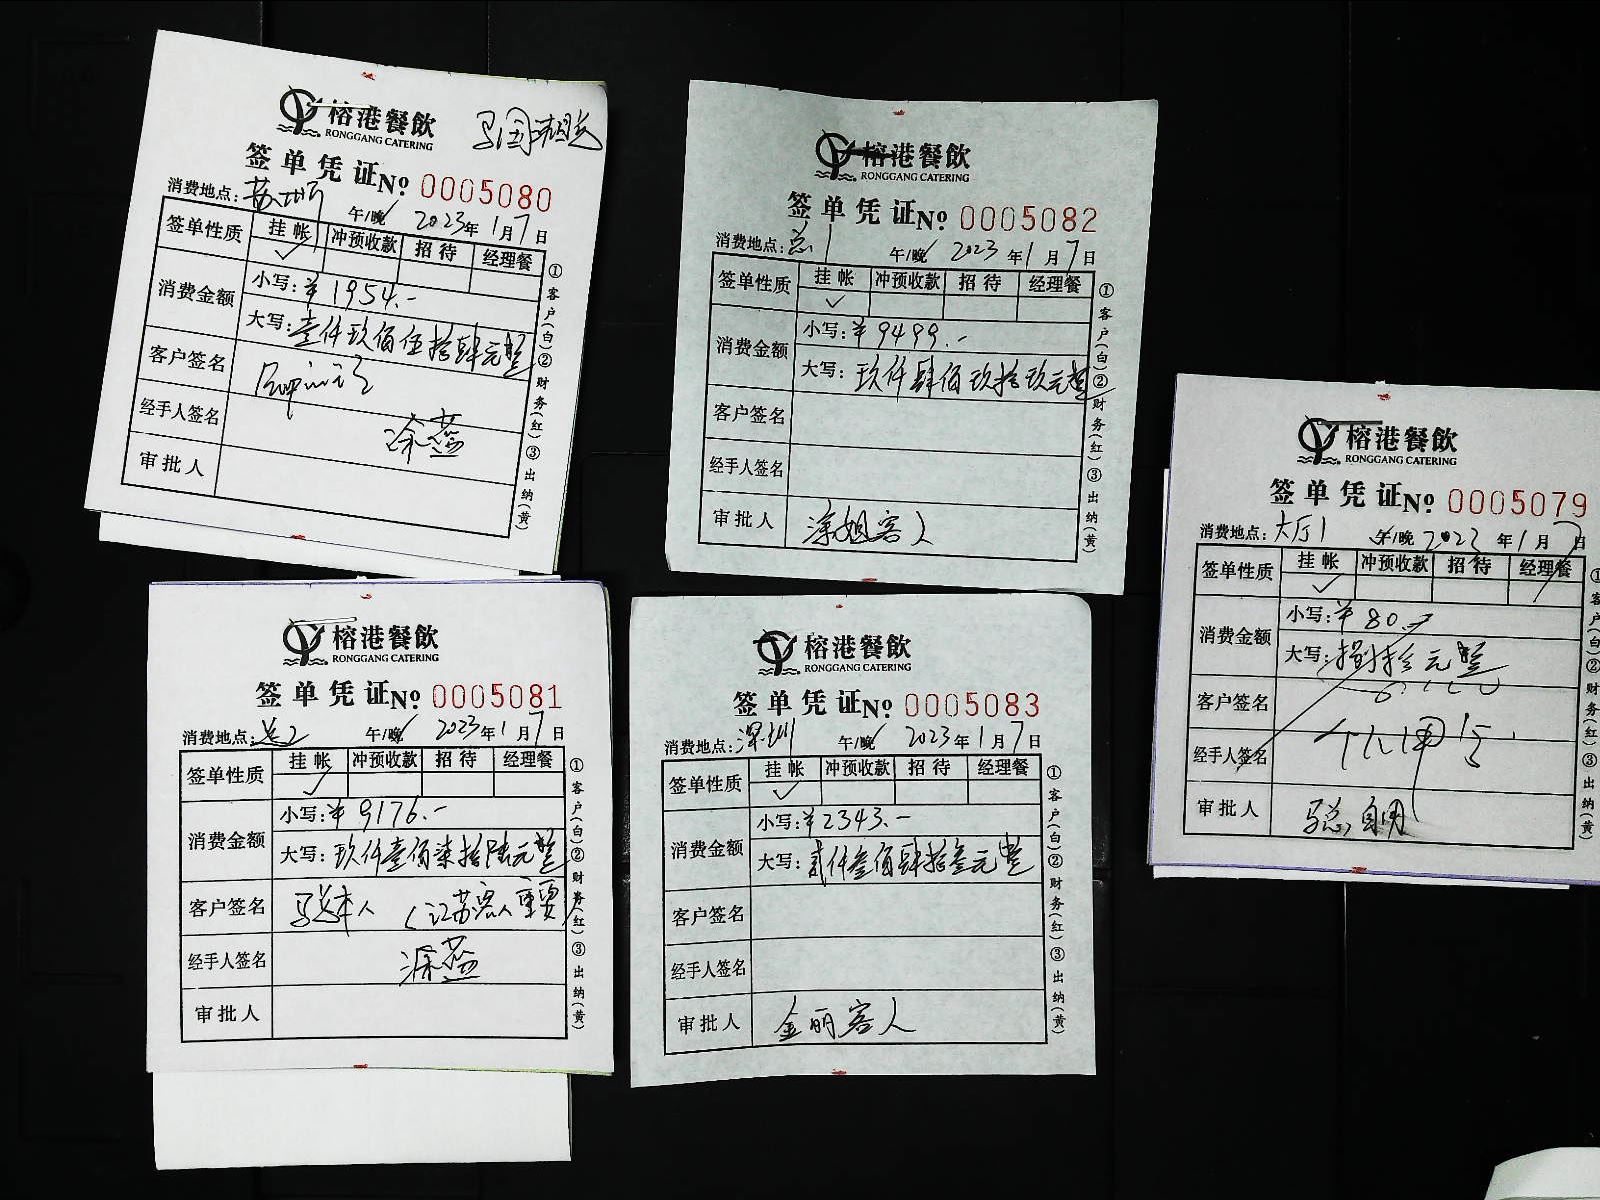 榕港餐飲
RONGGANG CATERING
签单凭证 № 0005080
消费地点：苏州厅 午/晚 2023年1月7日
签单性质 挂帐 冲预收款 招待 经理餐
✓
消费金额 小写：¥1954.-
大写：壹仟玖佰伍拾肆元整
客户签名
经手人签名 涂燕
审批人
①客户(白)②财务(红)③出纳(黄)
榕港餐飲
RONGGANG CATERING
签单凭证 № 0005082
消费地点：总1 午/晚 2023年1月7日
签单性质 挂帐 冲预收款 招待 经理餐
✓
消费金额 小写：¥9499.-
大写：玖仟肆佰玖拾玖元整
客户签名
经手人签名
审批人 涂姐客人
①客户(白)②财务(红)③出纳(黄)
榕港餐飲
RONGGANG CATERING
签单凭证 № 0005079
消费地点：大厅1 午/晚 2023年1月7日
签单性质 挂帐 冲预收款 招待 经理餐
✓
消费金额 小写：¥80.-
大写：捌拾元整
客户签名
经手人签名
审批人 马总自用
①客户(白)②财务(红)③出纳(黄)
榕港餐飲
RONGGANG CATERING
签单凭证 № 0005081
消费地点：总2 午/晚 2023年1月7日
签单性质 挂帐 冲预收款 招待 经理餐
✓
消费金额 小写：¥9176.-
大写：玖仟壹佰柒拾陆元整
客户签名 马总本人（江苏客人重要）
经手人签名 涂燕
审批人
①客户(白)②财务(红)③出纳(黄)
榕港餐飲
RONGGANG CATERING
签单凭证 № 0005083
消费地点：深圳 午/晚 2023年1月7日
签单性质 挂帐 冲预收款 招待 经理餐
✓
消费金额 小写：¥2343.-
大写：贰仟叁佰肆拾叁元整
客户签名
经手人签名
审批人 金丽客人
①客户(白)②财务(红)③出纳(黄)